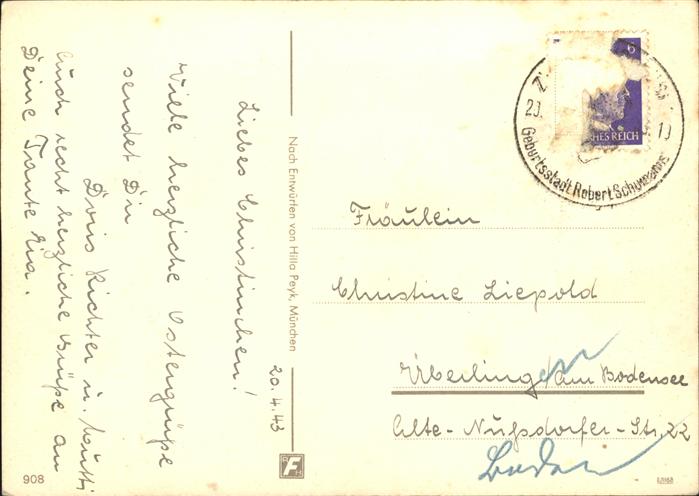 Liebes Christinchen!
Viele herzliche Ostergrüße
sendet Dir
Doris Richter u. Mutti
Auch recht herzliche Grüße an
Deine Tante Eva.
20.4.43
Nach Entwürfen von Hilla Peyk, München
908
F
6
HES REICH
Z
20.
10
Geburtsstadt Robert Schumanns
Fräulein
Christine Liepold
Überlingen am Bodensee
Alte-Nußdorfer-Str. 22
Baden